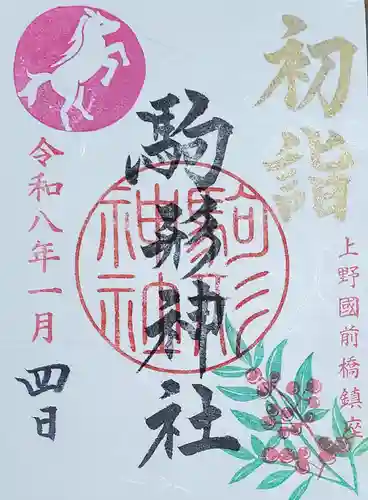 初詣
上野國前橋鎮座
駒形神社
駒形神社
令和八年一月
四日